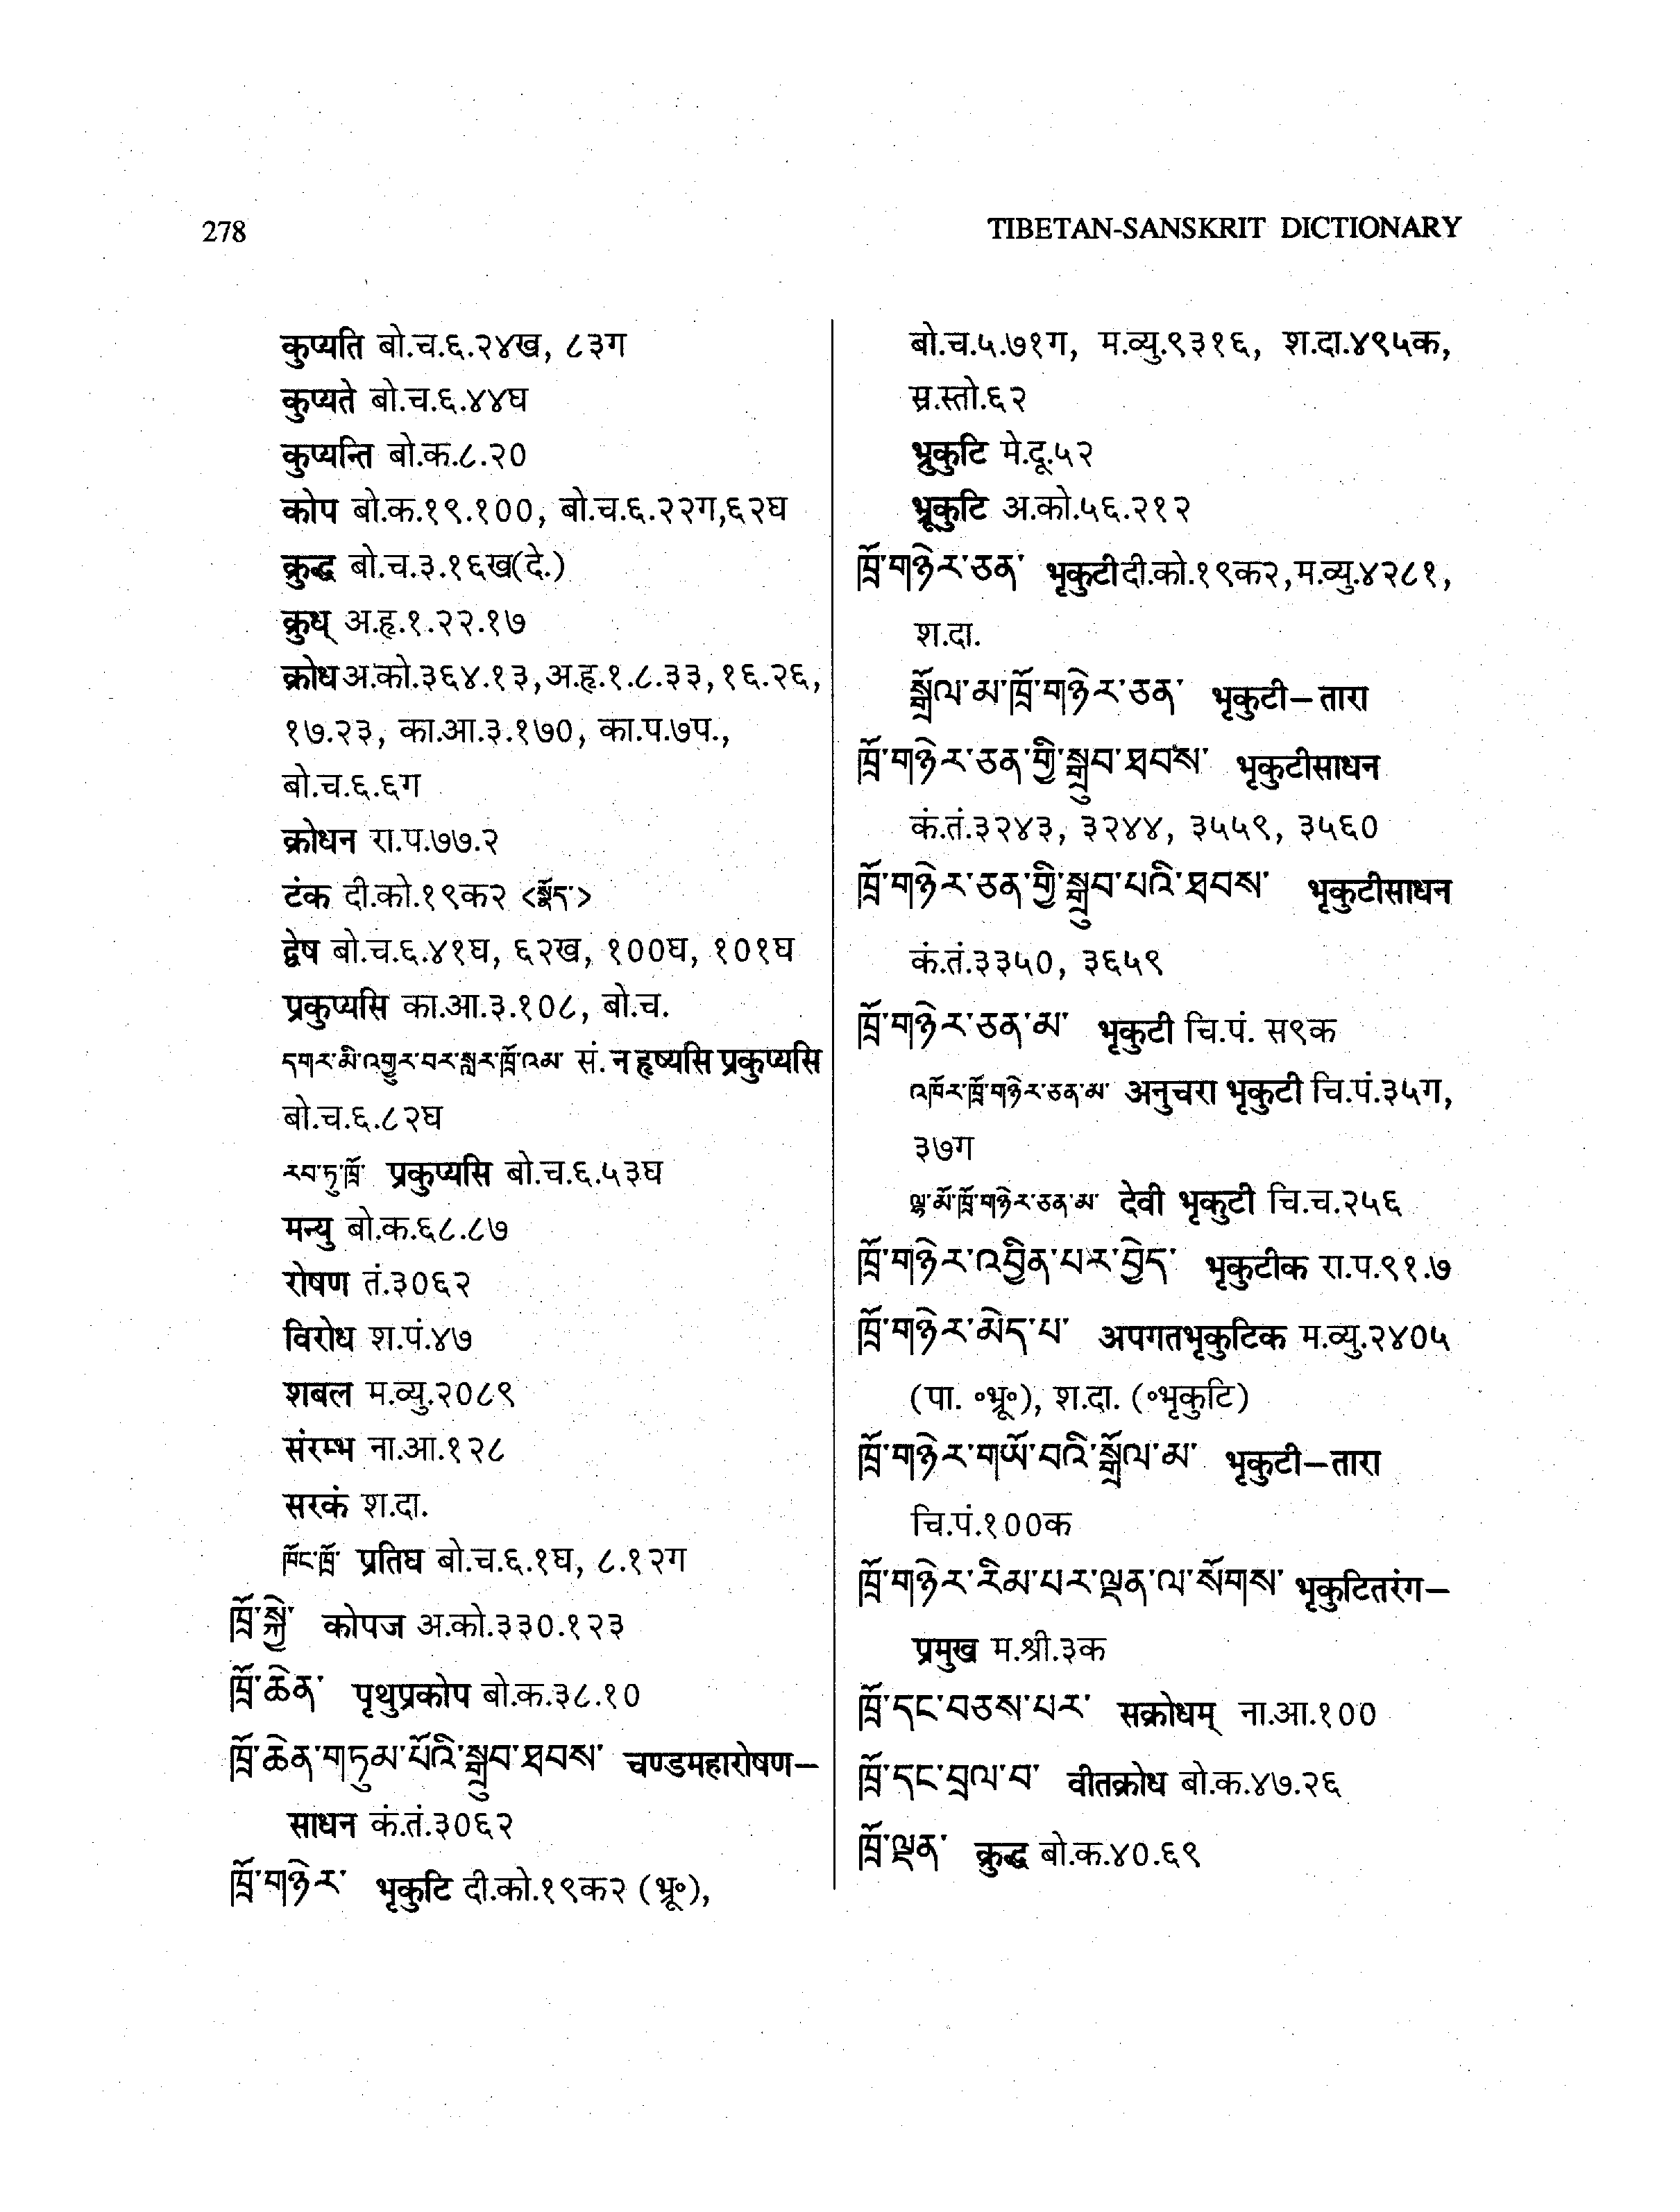 278
TIBETAN-SANSKRIT DICTIONARY
कुप्यति बो.च.६.२४ख, ८३ग
कुप्यते बो.च.६.४४घ
कुप्यन्ति बो.क.८.२०
कोप बो.क.१९.१००, बो.च.६.२२ग,६२घ
क्रुद्ध बो.च.३.१६ख(दे.)
क्रुध् अ.हृ.१.२२.१७
क्रोध अ.को.३६४.१३,अ.हृ.१.८.३३,१६.२६,
१७.२३, का.आ.३.१७०, का.प.७प.,
बो.च.६.६ग
क्रोधन रा.प.७७.२
टंक दी.को.१९क२ <སྡོད་>
द्वेष बो.च.६.४१घ, ६२ख, १००घ, १०१घ
प्रकुप्यसि का.आ.३.१०८, बो.च.
དགར་མི་འགྱུར་བར་སླར་ཁྲོ་འམ་ सं. न हृष्यसि प्रकुप्यसि
बो.च.६.८२घ
རབ་ཏུ་ཁྲོ་ प्रकुप्यसि बो.च.६.५३घ
मन्यु बो.क.६८.८७
रोषण तं.३०६२
विरोध श.पं.४७
शबल म.व्यु.२०८९
संरम्भ ना.आ.१२८
सरकं श.दा.
ཁོང་ཁྲོ་ प्रतिघ बो.च.६.१घ, ८.१२ग
ཁྲོ་སྐྱེ་ कोपज अ.को.३३०.१२३
ཁྲོ་ཆེན་ पृथुप्रकोप बो.क.३८.१०
ཁྲོ་ཆེན་གཏུམ་པོའི་སྒྲུབ་ཐབས་ चण्डमहारोषण–
साधन कं.तं.३०६२
ཁྲོ་གཉེར་ भृकुटि दी.को.१९क२ (भ्रू०),
बो.च.५.७१ग, म.व्यु.९३१६, श.दा.४९५क,
स्र.स्तो.६२
भ्रुकुटि मे.दू.५२
भ्रूकुटि अ.को.५६.२१२
ཁྲོ་གཉེར་ཅན་ भृकुटी दी.को.१९क२,म.व्यु.४२८१,
श.दा.
སྒྲོལ་མ་ཁྲོ་གཉེར་ཅན་ भृकुटी–तारा
ཁྲོ་གཉེར་ཅན་གྱི་སྒྲུབ་ཐབས་ भृकुटीसाधन
कं.तं.३२४३, ३२४४, ३५५९, ३५६०
ཁྲོ་གཉེར་ཅན་གྱི་སྒྲུབ་པའི་ཐབས་ भृकुटीसाधन
कं.तं.३३५०, ३६५९
ཁྲོ་གཉེར་ཅན་མ་ भृकुटी चि.पं. स९क
འཁོར་ཁྲོ་གཉེར་ཅན་མ་ अनुचरा भृकुटी चि.पं.३५ग,
३७ग
ལྷ་མོ་ཁྲོ་གཉེར་ཅན་མ་ देवी भृकुटी चि.च.२५६
ཁྲོ་གཉེར་འབྱིན་པར་བྱེད་ भृकुटीक रा.प.९१.७
ཁྲོ་གཉེར་མེད་པ་ अपगतभृकुटिक म.व्यु.२४०५
(पा. ०भ्रू०), श.दा. (०भृकुटि)
ཁྲོ་གཉེར་གཡོ་བའི་སྒྲོལ་མ་ भृकुटी–तारा
चि.पं.१००क
ཁྲོ་གཉེར་རིམ་པར་ལྡན་ལ་སོགས་ भृकुटितरंग–
प्रमुख म.श्री.३क
ཁྲོ་དང་བཅས་པར་ सक्रोधम् ना.आ.१००
ཁྲོ་དང་བྲལ་བ་ वीतक्रोध बो.क.४७.२६
ཁྲོ་ལྡན་ क्रुद्ध बो.क.४०.६९